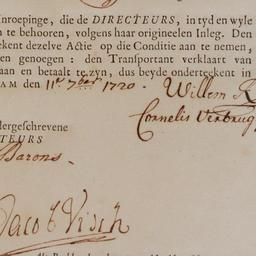 inroepinge, die de DIRECTEURS, in tyd en wyle
n te behooren, volgens haar origineelen Inleg. Den
ekent dezelve Actie op die Conditie aan te nemen,
en genoegen: den Transportant verklaart van
aan en betaalt te zyn, dus beyde onderteekent in
AM den 11e 7ber 1720. Willem R
Cornelis Verbrug
dergeschrevene
TEURS
Barons.
Jacob Visch